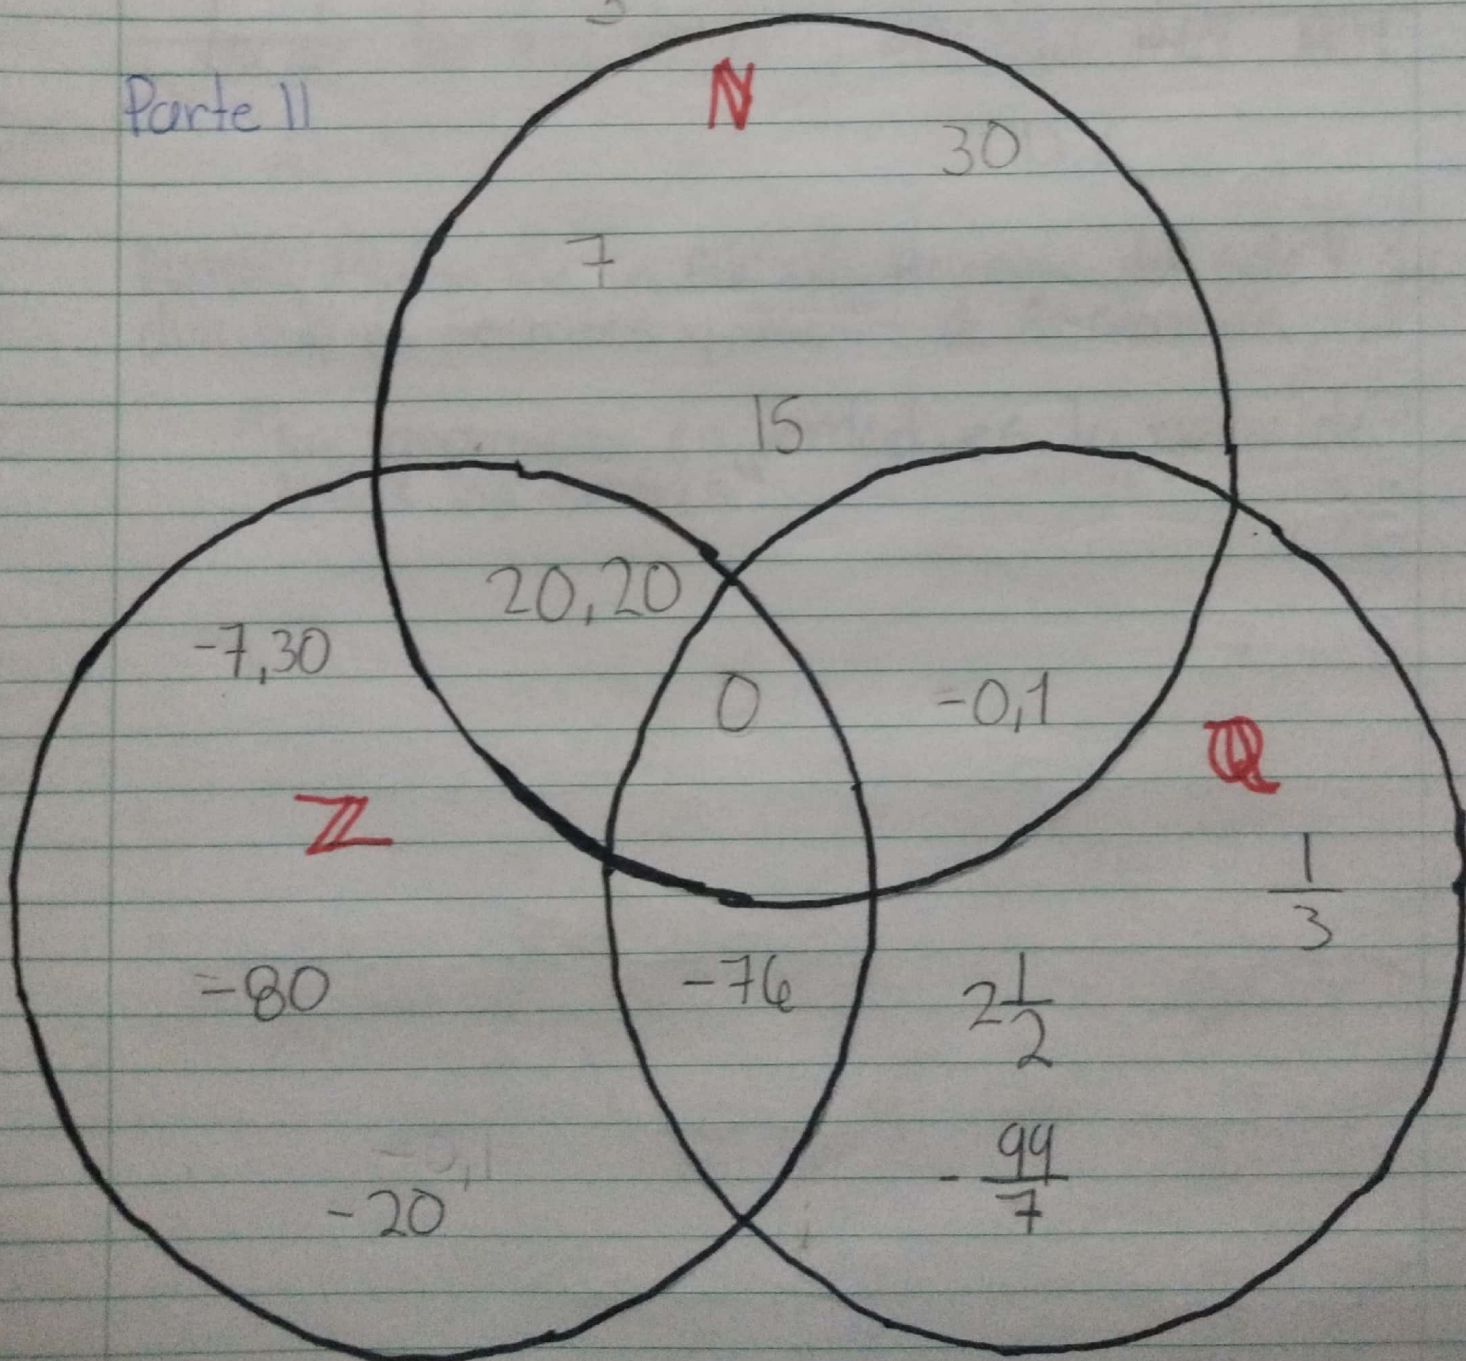 Parte II
N
30
7
15
20,20
-7,30
0
-0,1
Q
Z
1/3
-80
-76
2 1/2
-99/7
-20